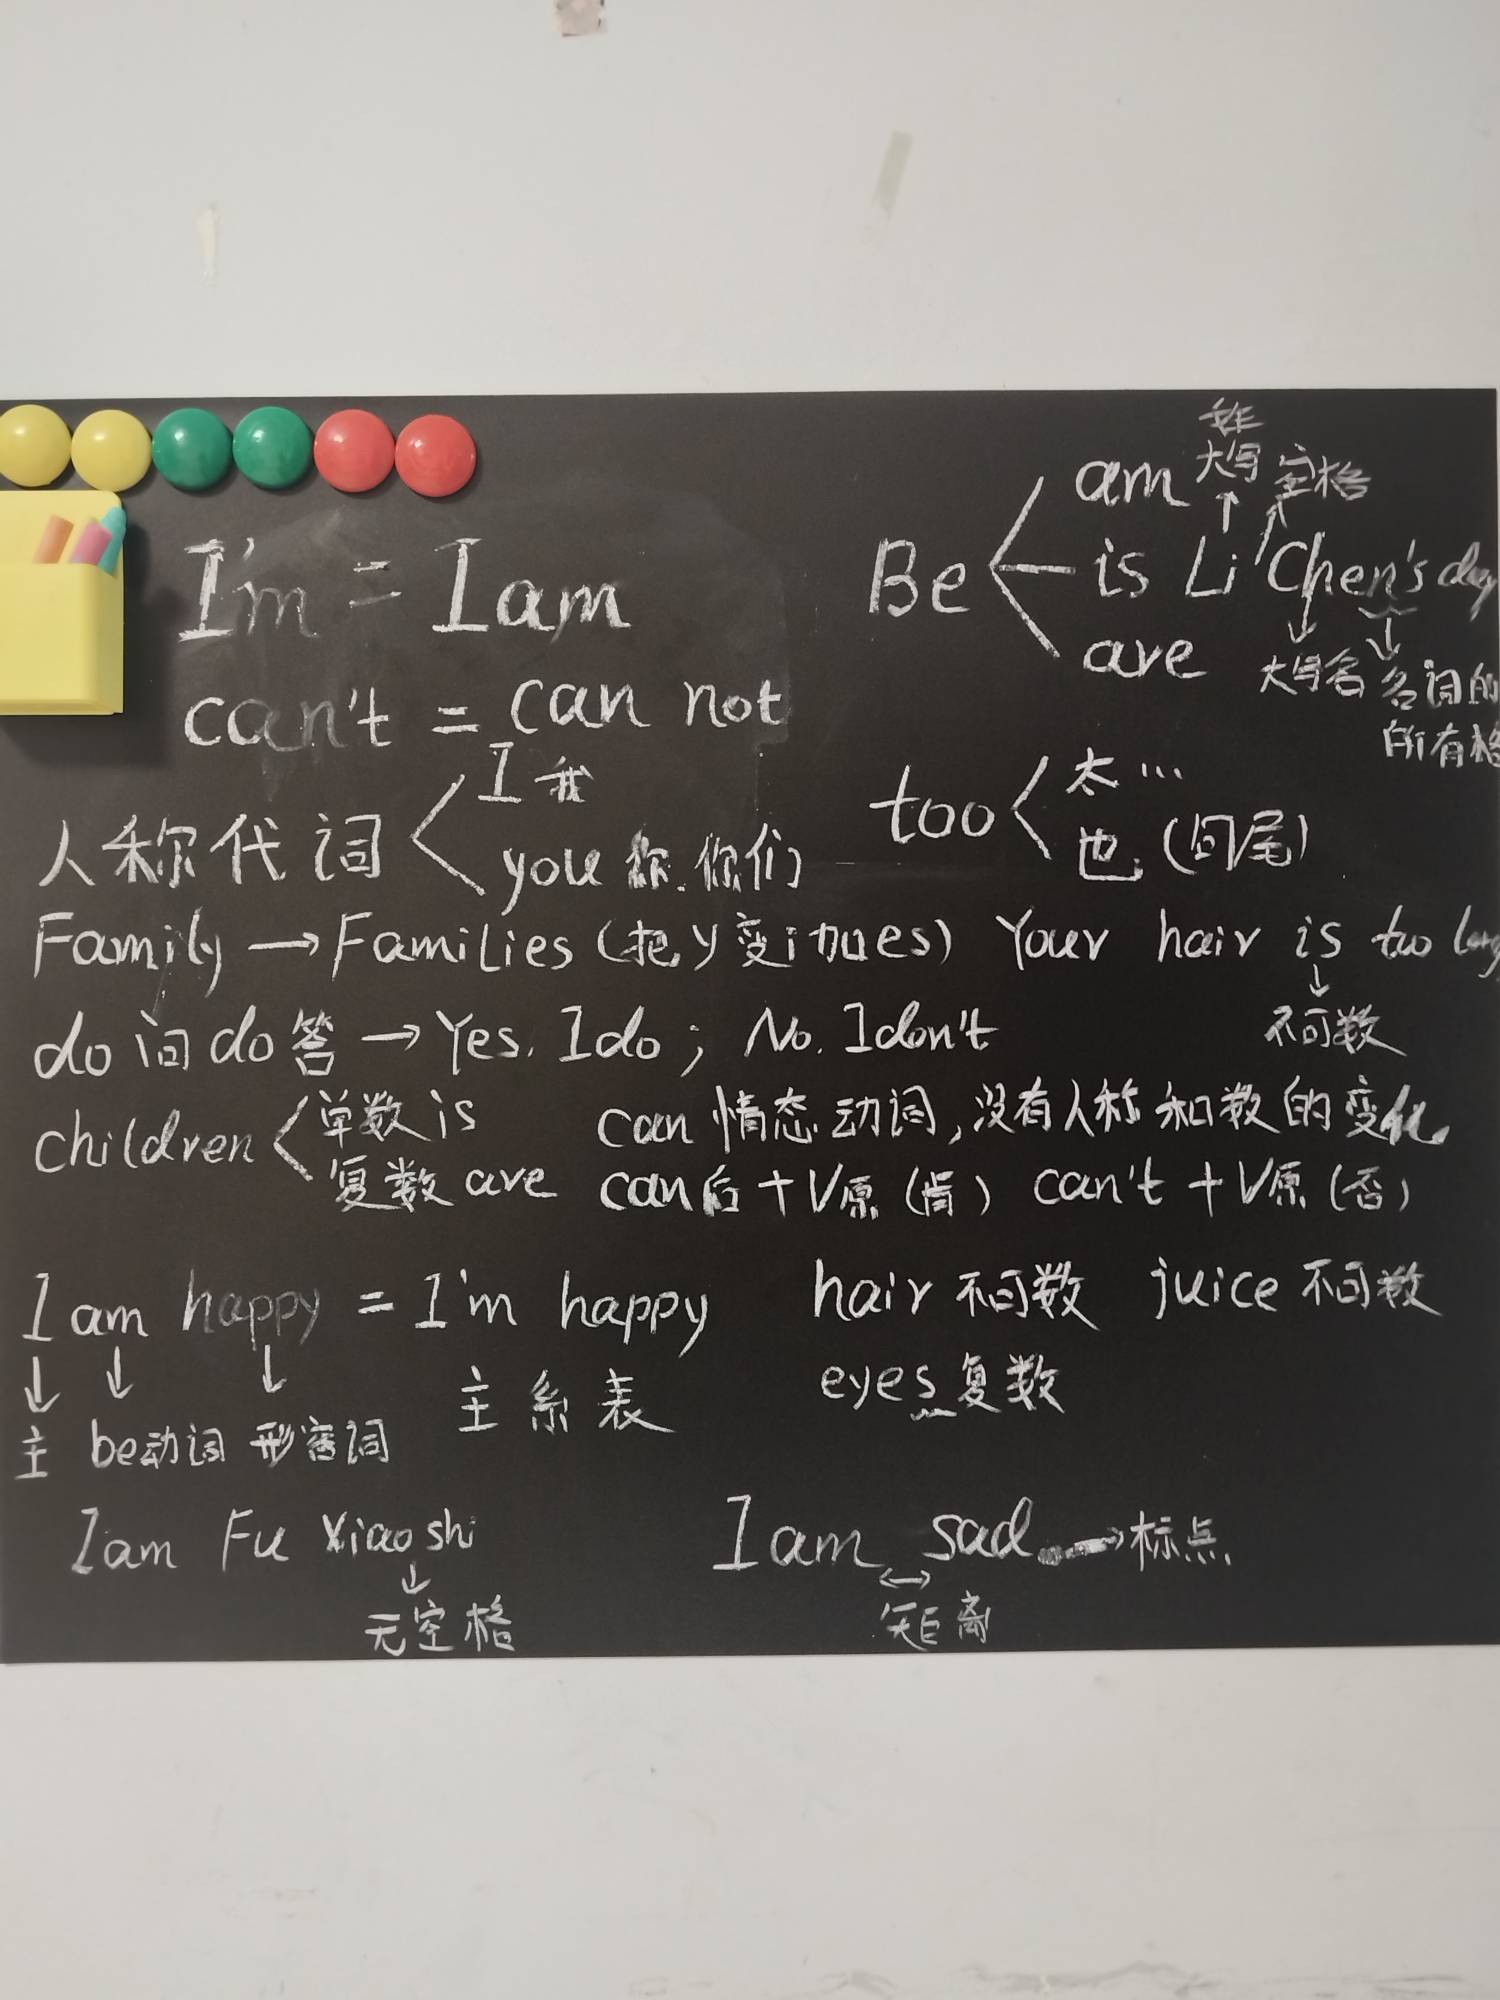 I'm = I am
can't = can not
人称代词
I 我
you 你.你们
Family → Families (把y变i加es)
do 问 do 答 → Yes. I do ; No. I don't
children
单数 is
复数 are
I am happy = I'm happy
主 be动词 形容词
主 系 表
I am Fu Xiaoshi
无空格
大写 空格
Be
am
is Li Chen's
are
大写名 名词的
所有格
too
太…
也 (句尾)
Your hair is too long
不可数
can 情态动词,没有人称和数的变化
can后+V原 (肯) can't+V原 (否)
hair 不可数 juice 不可数
eyes 复数
I am sad. → 标点
距离